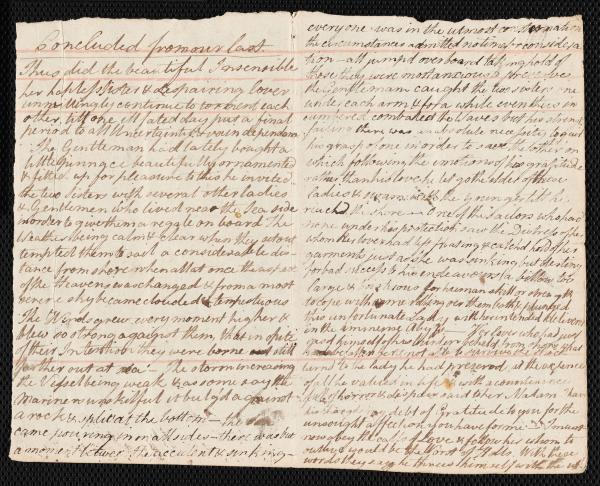 Concluded from our last
Thus did the beautiful Insensible
her hapless Sister & despairing lover
unwillingly continue to torment each
other, till one ill fated day put a final
period to all Uncertainty & vain dependan
The Gentleman had lately bought a
little pinnace beautifully ornamented
& fitted up for pleasure to this he invited
the two sisters with several other ladies
& Gentlemen who lived near the Sea side
in order to give them a regale on board. The
Weather being calm & clear when they set out
tempted them to sail a considerable dis-
tance from shore when all at once the aspect
of the Heavens was changed & from a most
serene sky became clouded & tempestuous
The Winds grew every moment higher &
blew so strong against them that in spite
of their Intention they were borne still
farther out at sea The storm increasing
the Vessel being weak & as some say the
Mariners unskilful it bulged against
a rock & split at the bottom the
came pouring in on all sides there was but
a moment between the accident & sinking
everyone was in the utmost consternation
the circumstances admitted no time for considera
tion all jumped overboard taking hold of
those they were most anxious to preserve
the Gentleman caught the two sisters one
under each arm & for a while even thus in
cumbered combated the Waves but his strength
failing there was an absolute necessity to quit
his grasp of one in order to save the other on
which following the emotions of his gratitude
rather than his love he let go the eldest of these
ladies & swam with the younger till he
reached the shore One of the Sailors who had
none under his protection saw the Distress of her
whom they lover had left & catch'd hold of her
garments just as she was sinking but the
forbad success to his endeavours a billow too
large & for human skill or strength
to cope with came them both & plunged
this unfortunate Lady with her intended deliverer
in the immense Abyss Her lover who had just
beheld from shore what
turn'd to the lady he had preserved at the expence
of all he valued in life & with a countenance
full of horror & despair said to her Madam
my debt of Gratitude to you for the
unsought affection you have for me I must
now obey the calls of Love & follow her whom to
outlive would be the worst of Hells. With these
words they say he threw himself with the